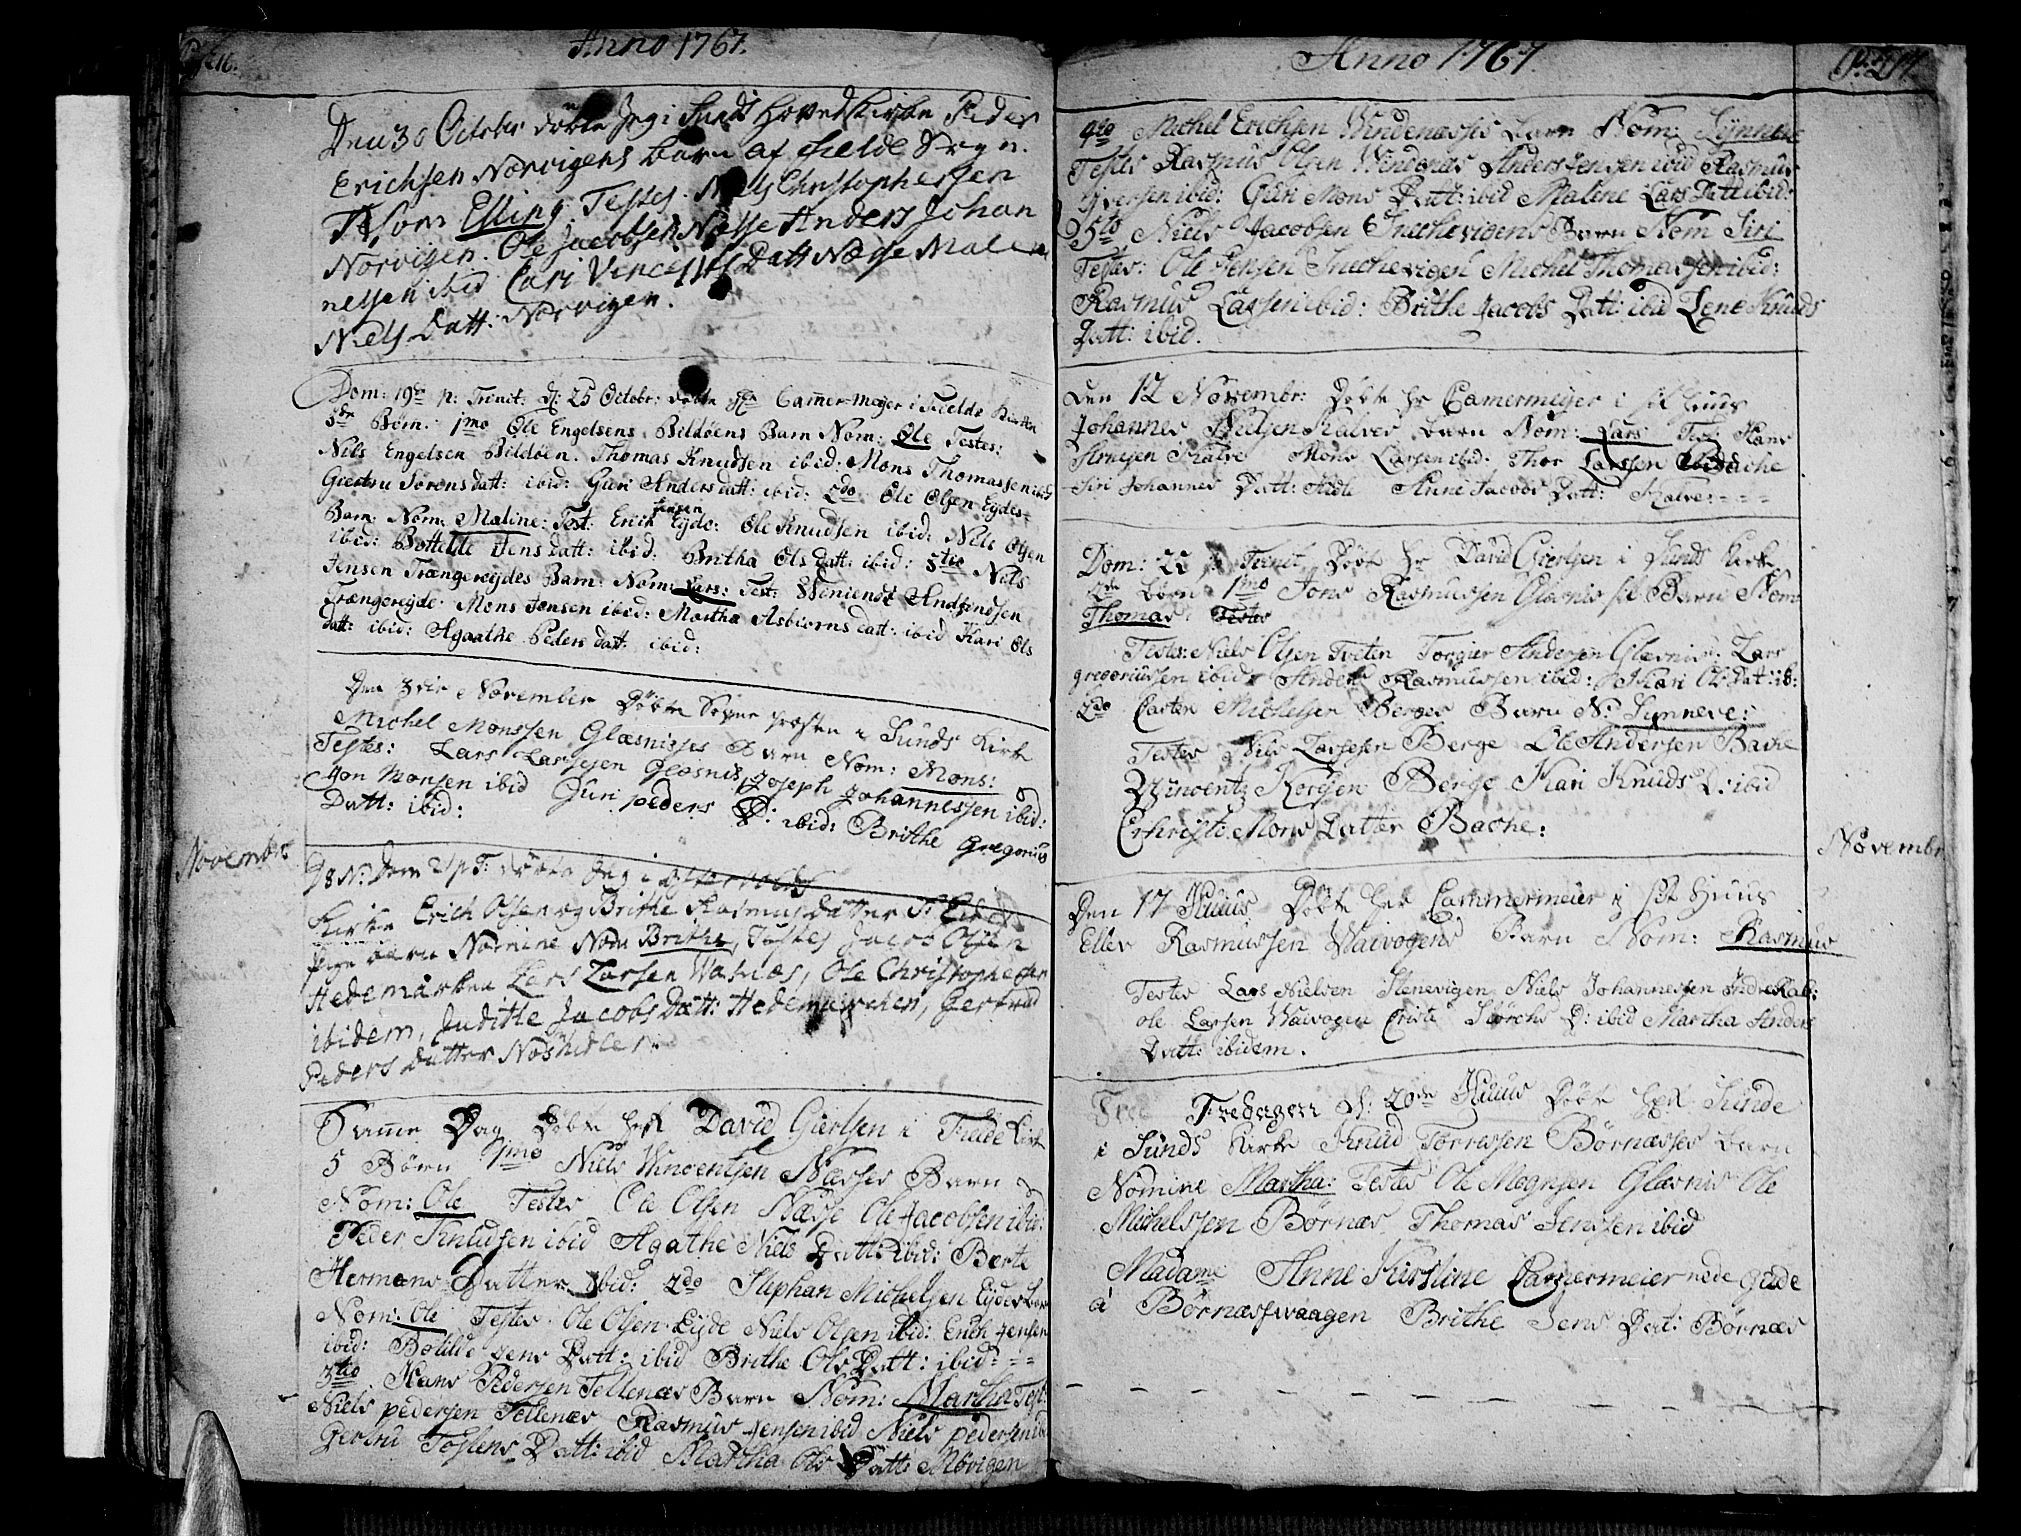 Anno 1767.
Den 30 Octobr døbte Jeg i Sunds Hoved Kirke Peder
Erichsen Norvigens barn af Fielde Sogn.
Nom Elling. Testes. Niels Christophersen
Norvigen. Ole Jacobsen Næsse Anders Johan
nessen ibid Cari Vincents Datt Næsse Malen
Niels Datt: Norvigen.
Dom: 19de p: Trinit: d: 25 Octobr: døbte Hr Cammer-meyer i Fielde Kirke
3de Børn. 1mo Ole Engelsens Bildøens Barn Nom: Ole Testes:
Nils Engelsen Bildøen. Thomas Knudsen ibid: Mons Thomassen ibid
Giertru Sørens datt: ibid: Guri Anders datt: ibid: 2do Ole Olsen Eydes-
Barn: Nom: Maline: Test: Erik Jensen Eyde: Ole Knudsen ibid: Nils Olsen
ibid: Bottelde Jens datt: ibid: Britha Ols datt: ibid: 3tio Nils
Jensen Trængereydes Barn: Nom: Lars: Test: Winiendt
Trængereyde. Mons Jensen ibid: Martha Asbiorns datt: ibid Kari Ols
datt: ibid: Agaathe Peders datt: ibid:
Den November Døbte Sogne præsten i Sunds Kirke
Michel Monssen Glæsnisses Barn Nom: Mons:
Testes: Lars Larssen Glæsnis, Joseph Johannessen ibid:
Jon Monsen ibid Guri peders D: ibid: Brithe Gregorius
Datt: ibid:
Novembr
D 8 N: Dom 21 p T: døbte Jeg i
Kirke Erich Olsen og Brithe Rasmusdatter
pige barn Nomine Nom Brithe, Testes Jacob Olsen
Hedemarken Lars Larsen Ole Christophersen
ibidem, Juditte Jacobs Datt: Hedemarchen, Gertrud
Peders datter
Samme Dag Døbte Hr David Gierlsen i Fielde Kirke
5 Børn 1mo Niels Vincentsen Næsses Barn
Nom: Ole Testes Ole Olsen Næsse Ole Jacobsen ibid:
Peder Knudsen ibid Agathe Niels Datt: ibid: Berte
Hermens Datter ibid: 2do Stephan Michelsen Eydes barn
Nom: Ole Testes. Ole Olsen Eyde Niels Olsen ibid: Erich Jensen
ibid: Botilde Jens Datt: ibid Brithe Ols Datt: ibid:---
3tio Hans Pedersen Tellenæs Barn Nom: Martha Test:
Niels pedersen Tellenæs Rasmus Jensen ibid Niels pedersen ibid
Gertrud Tostens Datt: ibid Martha Ols Datt: Møvigen
Anno 1767.
4to Michel Erichsen Vindenæsses barn Nom: Synneve
Testes Rasmus Olsen Vindenæs Anders Jensen ibid Rasmus
Iversen ibid: Guri Mons Datt: ibid Malene Lars Datt ibid:
5to Niels Jacobsen Snechevigens Barn Nom Siri
Testes: Ole Jensen Snechevigen Michel Thomassen ibid:
Rasmus Lassen ibid: Brithe Jacobs Datt: ibid Lene Knuds
Datt: ibid.
Den 12 Novembr: Døbte Hr Camermeyer i sit Huus
Johannes Nielsen Kalves barn Nom: Lars Test Hans
Arnesen Kalve Mons Larsen ibid. Thor Larssen ibid
Siri Johannes Datt: Anne Jacobs Datt: Kalve:---
Dom: 22 p Trinit Døbte Hr David Gierlsen i Sunds Kirke
2de børn 1mo Jons Rasmussen Glæsnis sit Barn Nom
Thomas: Testes
Testes: Niels Olsen Tveten Torgier Andersen Glæsnis: Lars
gregoriussen ibid Anders Rasmussen ibid: Kari Ol: Dat: ib:
2do Carten Michelsen Berges Barn N: Synneve:
Testes Nils Larssen Berge Ole Andersen Bache
Wincentz Berge Kari Knuds D: ibid
Christi Mons Datter Bache:
Novembr
Den 17 Huius Døbte Her Cammermeier i sit Huus
Ellev Rasmussen Waivogens Barn Nom: Rasmus
Testes Lars Nielsen Stenevigen Niels Johannessen
ole Larsen Waivogen Criste Størchs D: ibid Martha Anders
Datt: ibidem.
Fredagen d: 20de Huius Døbte Her Sunde
i Sunds Kirke Knud Torressen Børnæsses barn
Nomine Martha: Testes Ole Mognsen Glæsnis Ole
Michelssen Børnæs Thomas Jenssen ibid
Madame Anne Kirstine Cammermeier nede gede
a Børnæsswaagen Brithe Jens Dat: Børnæs